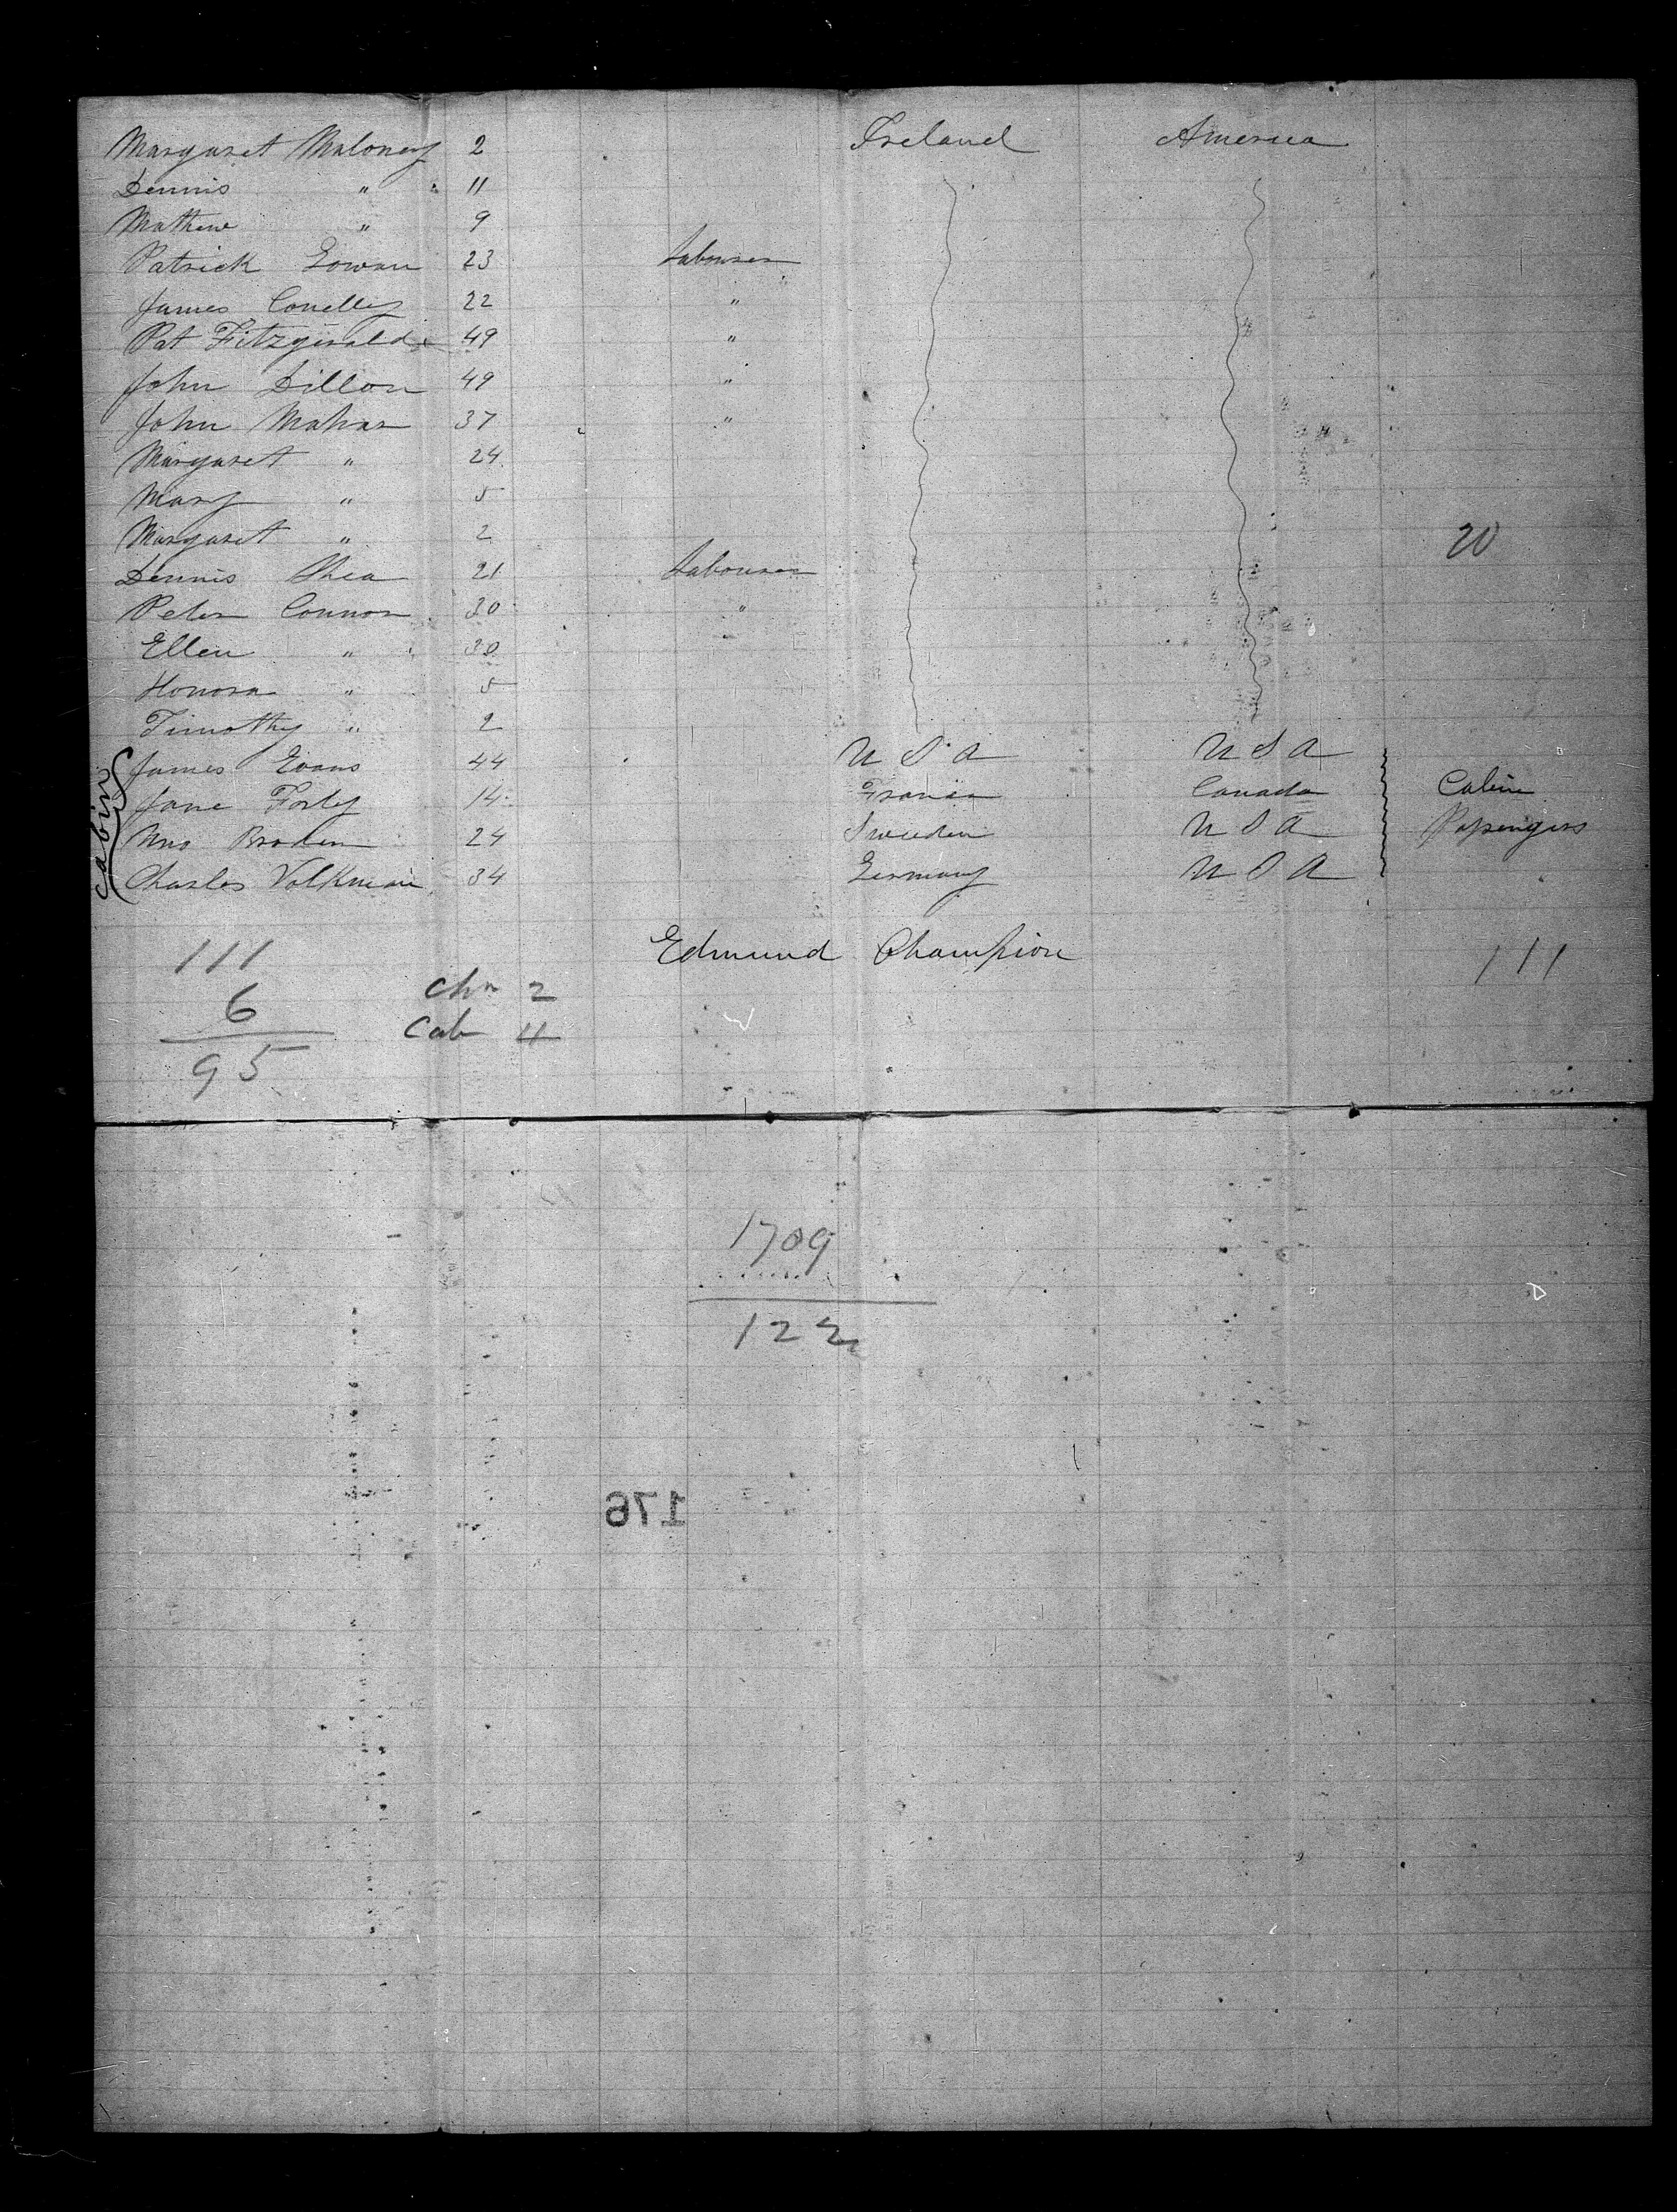 Margaret Maloney 2 Ireland America
Dennis " 11
Mathew " 9
Patrick Gowan 23 Labourer
James Conelly 22 "
Pat Fitzgerald 49 "
John Dillon 49 "
John Mahar 37 "
Margaret " 24
Mary " 5
Margaret " 2 20
Dennis Shea 21 Labourer
Peter Connor 30 "
Ellen " 30
Honora " 5
Timothy " 2
Cabin
James Evans 44 U S A U S A
Jane Forly 14 France Canada Cabin
Mrs Broden 24 Sweeden U S A Passengers
Charles Volkman 34 Germany U S A
Edmund Champion
111 111
6 Chn 2
95 Cab 11
1709
122
176